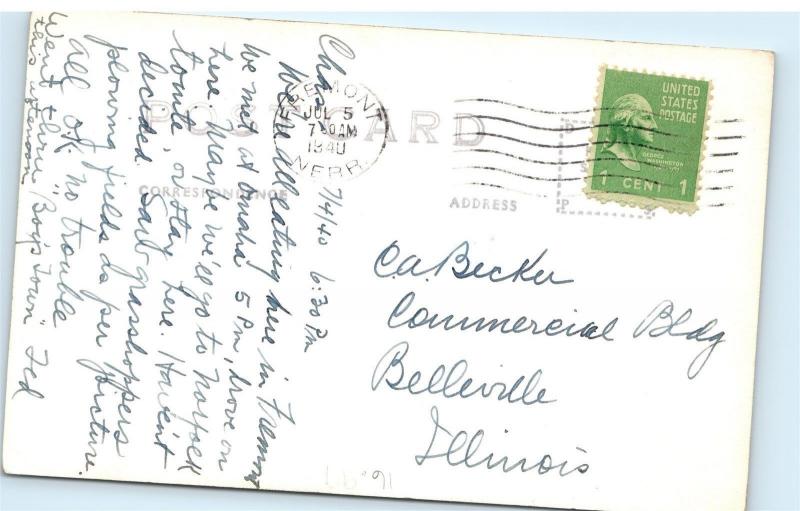 POST CARD
CORRESPONDENCE
ADDRESS
FREMONT
JUL 5
7 30 AM
1940
NEBR.
UNITED
STATES
POSTAGE
GEORGE
WASHINGTON
1 CENT 1
7/4/40 6:30 PM
Chas
We're all eating here in Fremont
We met at Omaha 5 PM, drove on
here. Maybe we'll go to Norfolk
tonite, or stay here. Havent
decided. Saw grasshoppers
plowing fields as per picture.
All OK, no trouble
Went throu "Boys Town"
this afternoon
Ted
C.A. Becker
Commercial Bldg
Belleville
Illinois